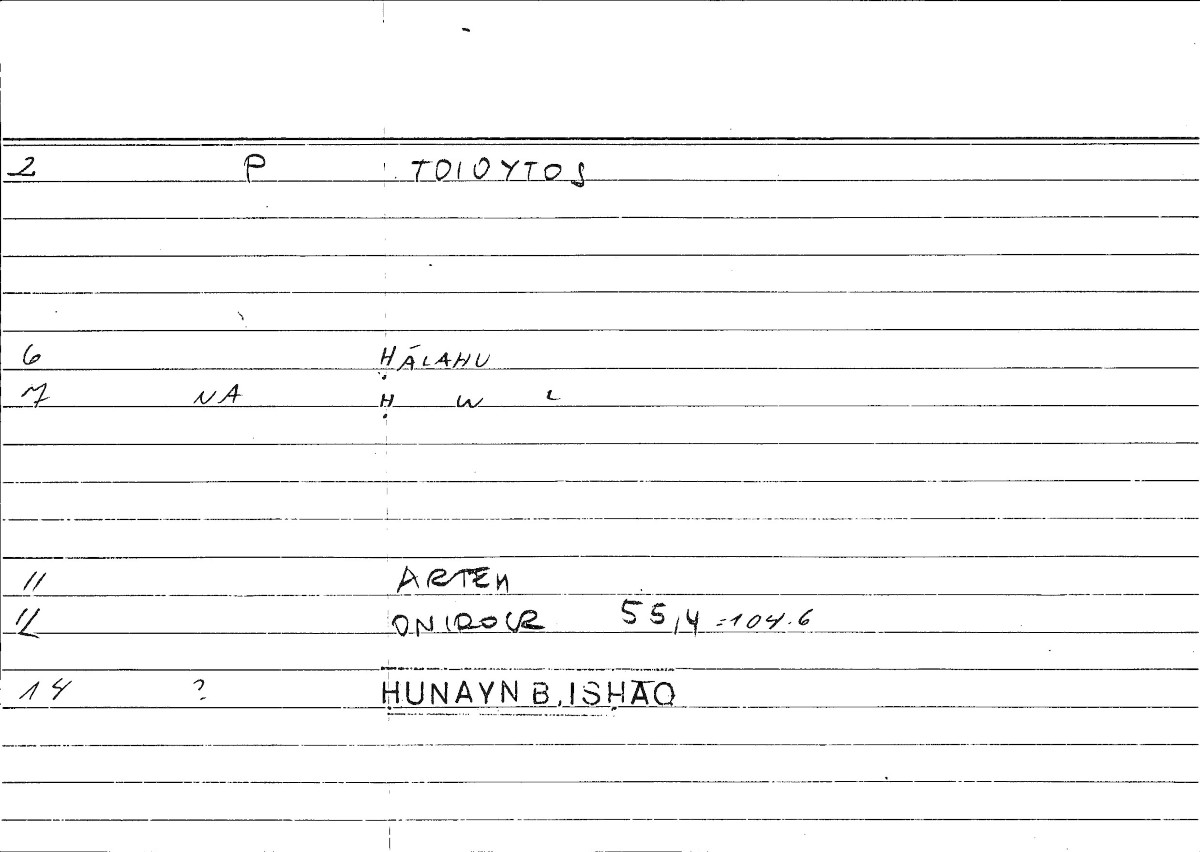 2 P TOIOYTOS
6 ḤĀLAHU
7 NA Ḥ W L
11 ARTEM
12 ONIROCR 55,4 = 104.6
14 ? ḤUNAYN B. ISḤĀQ